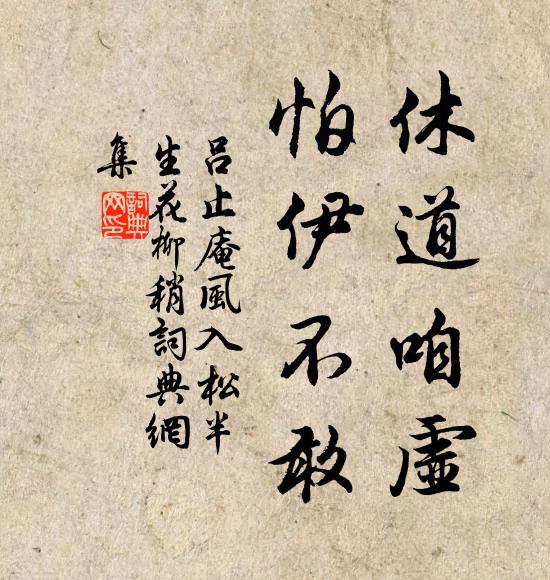 休道咱虛
怕伊不敢
呂止庵風入松半
生花柳稍詞典網
集
詞典
网印